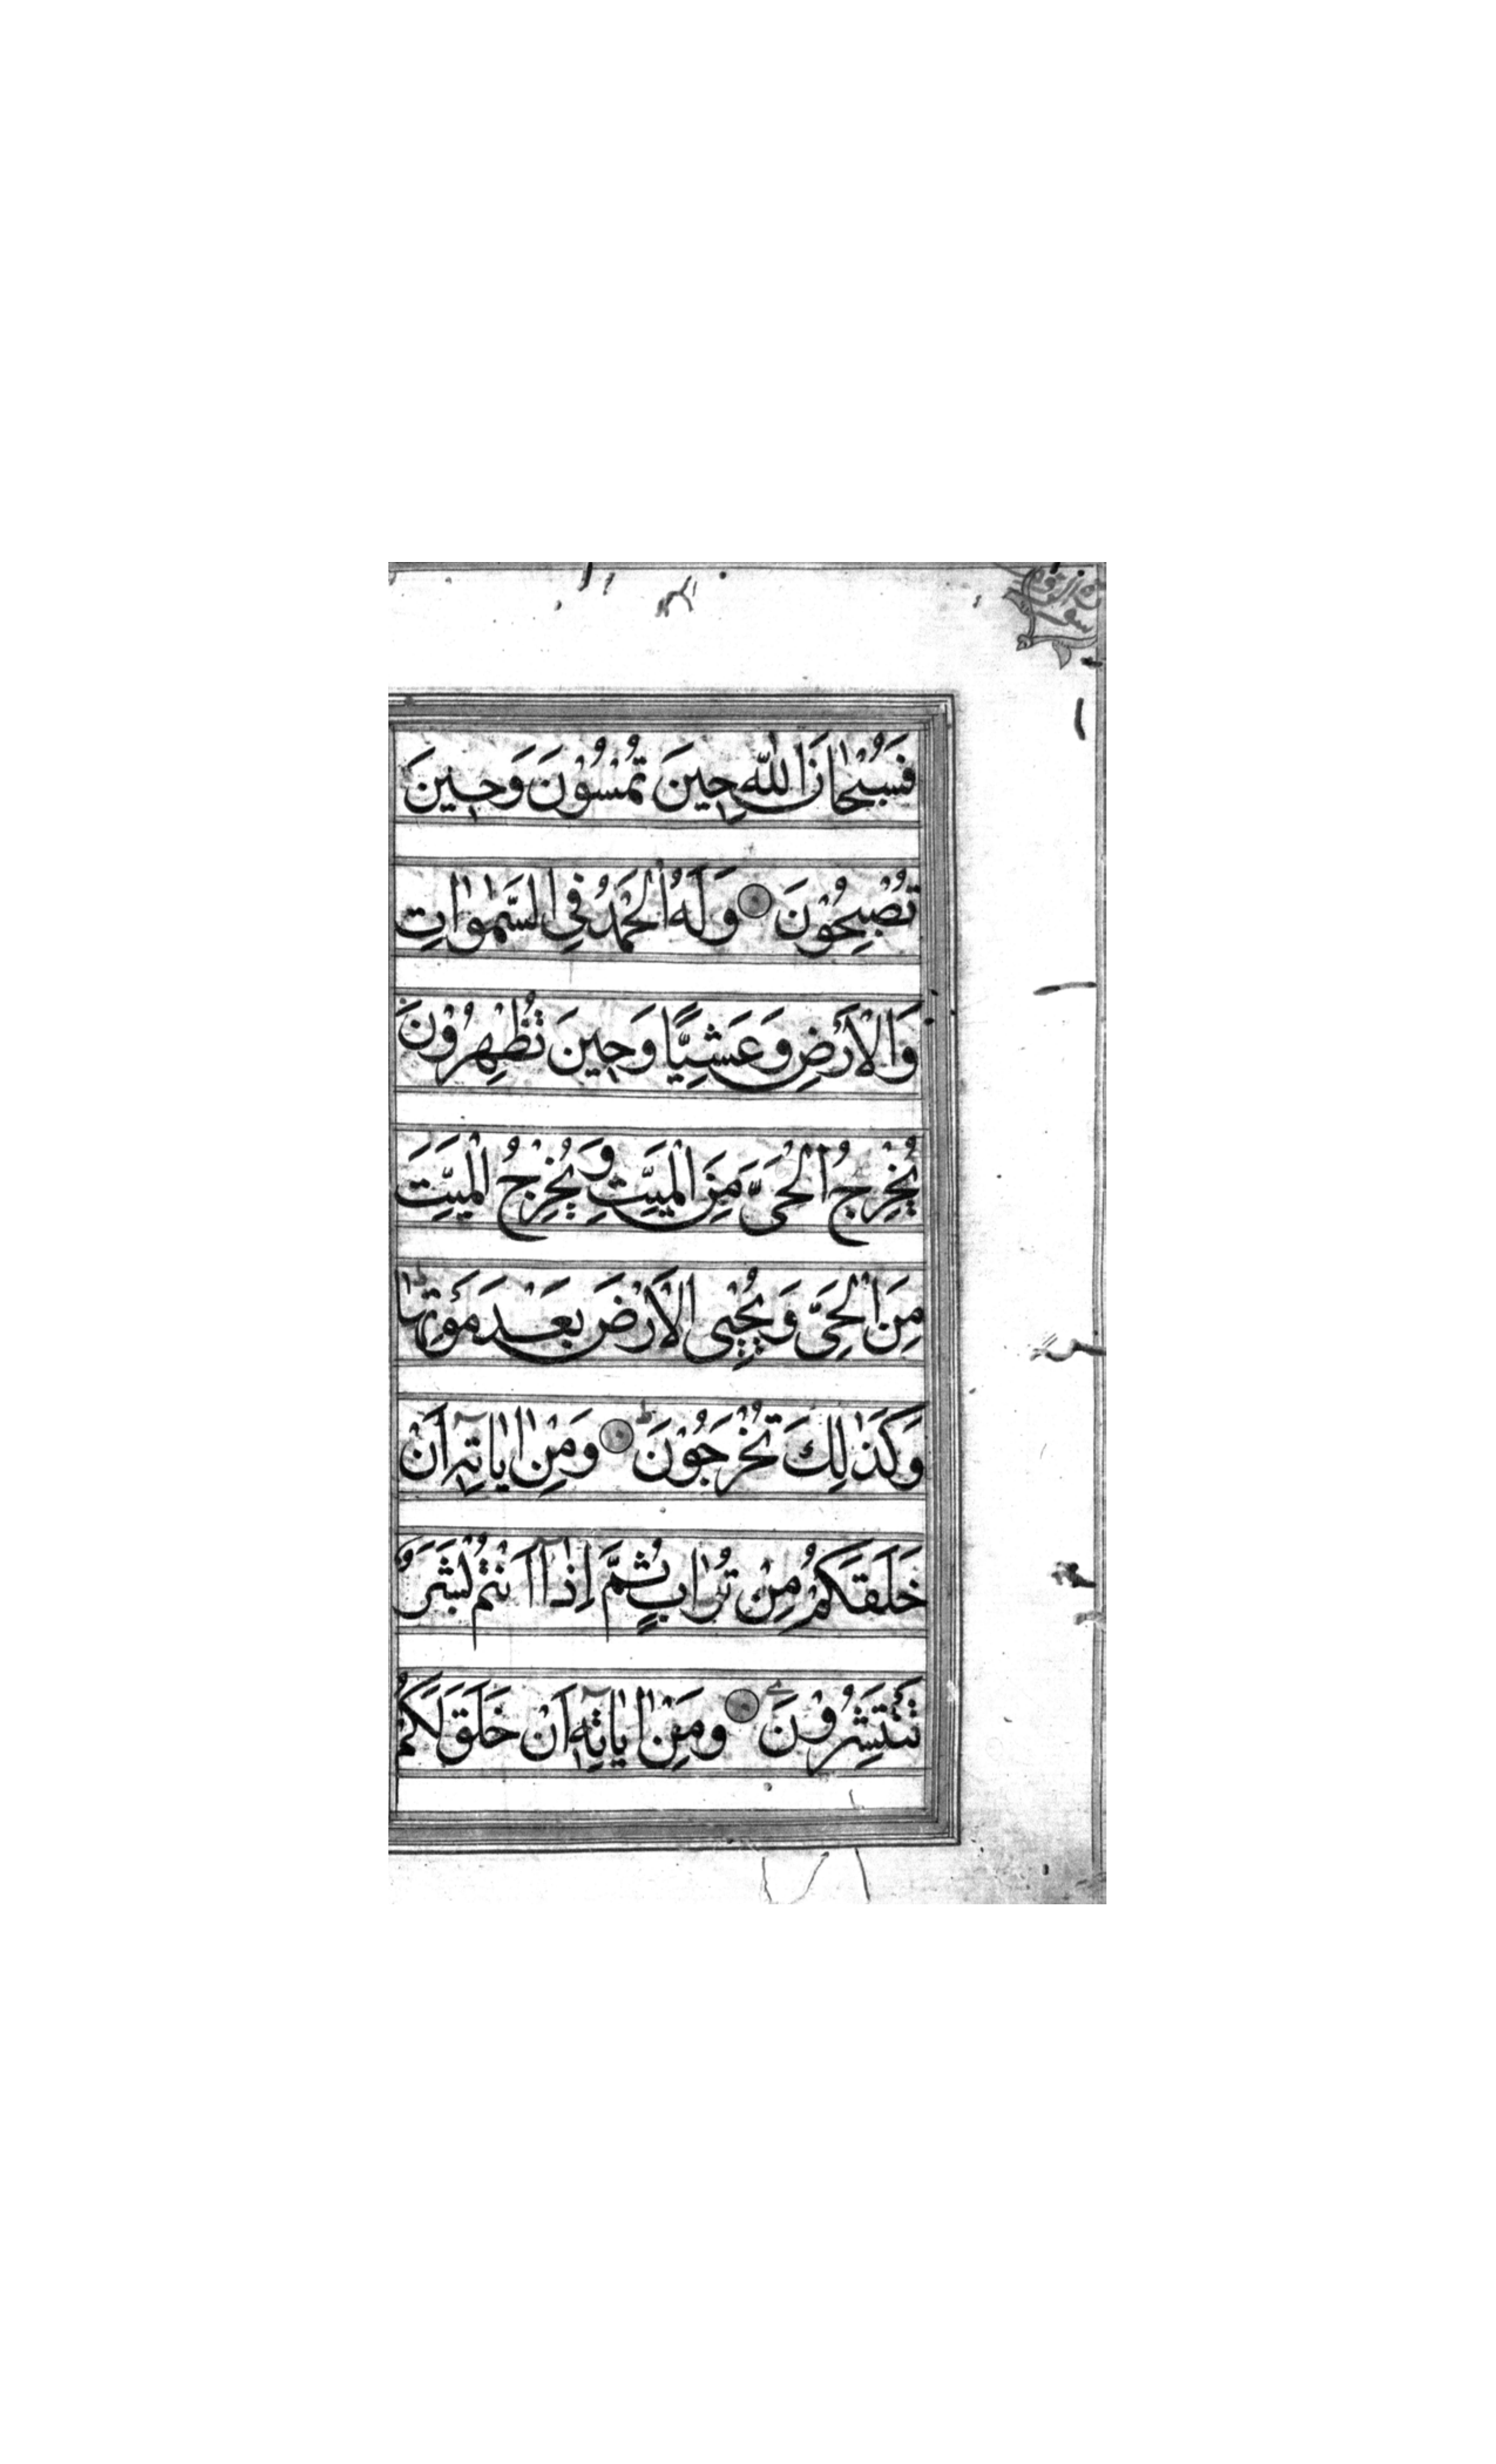 فَسُبْحَانَ اللّٰهِ حِينَ تُمْسُوْنَ وَحِينَ
تُصْبِحُوْنَ وَلَهُ الْحَمْدُ فِي السَّمٰوَاتِ
وَالْاَرْضِ وَعَشِيًّا وَحِينَ تُظْهِرُوْنَ
يُخْرِجُ الْحَيَّ مِنَ الْمَيِّتِ وَيُخْرِجُ الْمَيِّتَ
مِنَ الْحَيِّ وَيُحْيِي الْاَرْضَ بَعْدَ مَوْتِهَا
وَكَذٰلِكَ تُخْرَجُوْنَ وَمِنْ اٰيَاتِهٖ اَنْ
خَلَقَكُمْ مِنْ تُرَابٍ ثُمَّ اِذَا اَنْتُمْ بَشَرٌ
تَنْتَشِرُوْنَ وَمِنْ اٰيَاتِهٖ اَنْ خَلَقَ لَكُمْ